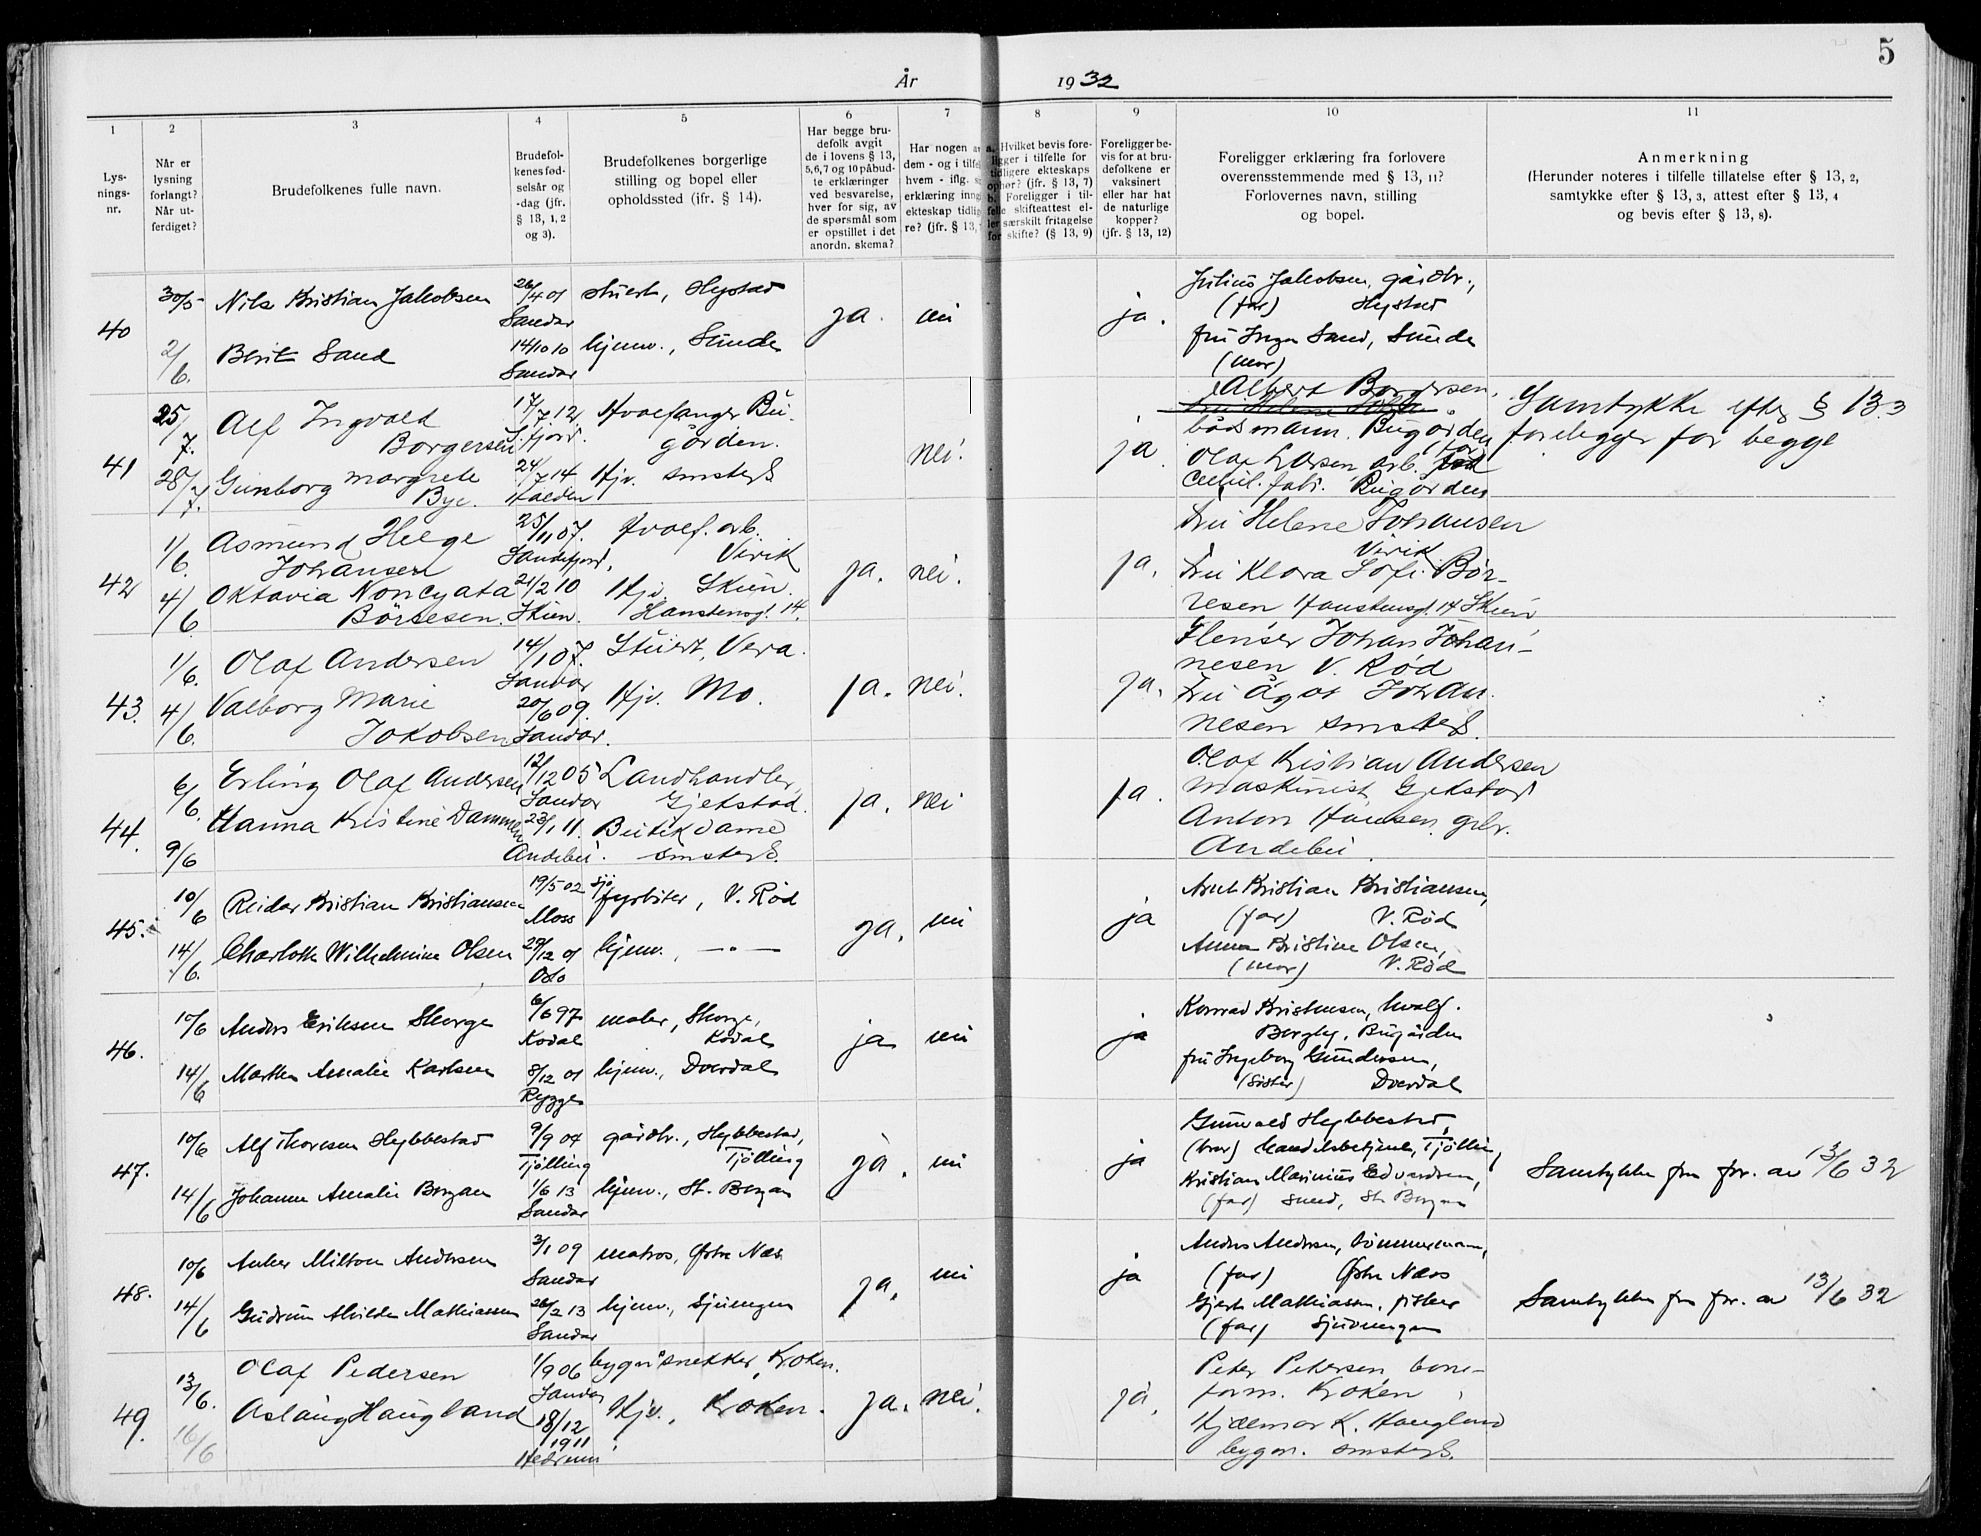 År 1932
5
1 2 3 4 5 6 7 8 9 10 11
Lys-
nings-
nr.
Når er
lysning
forlangt?
Når ut-
ferdiget?
Brudefolkenes fulle navn.
Brudefol-
kenes fød-
selsår og
-dag (jfr.
§ 13, 1, 2
og 3).
Brudefolkenes borgerlige
stilling og bopel eller
opholdssted (jfr. § 14).
Har begge bru-
defolk avgit
de i lovens § 13,
5, 6, 7 og 10 påbud-
te erklæringer
ved besvarelse,
hver for sig, av
de spørsmål som
er opstillet i det
anordn. skema?
Har nogen a
dem - og i tilfel
hvem - iflg. s
erklæring inng
ekteskap tidlig
re? (jfr. § 13,
a. Hvilket bevis fore-
ligger i tilfelle for
tidligere ekteskaps
ophør? (jfr. § 13, 7)
b. Foreligger i til-
felle skifteattest el-
ler særskilt fritagelse
for skifte? (§ 13, 9)
Foreligger be-
vis for at bru-
defolkene er
vaksinert
eller har hat
de naturlige
kopper?
(jfr. § 13, 12)
Foreligger erklæring fra forlovere
overensstemmende med § 13, 11?
Forlovernes navn, stilling
og bopel.
Anmerkning
(Herunder noteres i tilfelle tillatelse efter § 13, 2,
samtykke efter § 13, 3, attest efter § 13, 4
og bevis efter § 13, 8).
40
30/5
2/6.
Nils Kristian Jakobsen
Berit Sand
26/4 01
Sandar
14/10 10
Sandar
stuert, Hystad
hjemv., Sunde
ja.
nei
ja.
Julius Jakobsen, gårdbr.,
(far) Hystad
fru Inga Sand, Sunde
(mor)
41
25/7.
28/7.
Alf Ingvald
Borgersen
Gunborg Margrete
Bye.
17/7.12.
S.fjord.
24/7 14
Halden
Hvalfanger Bu-
gården.
Hjv. smsteds
nei.
ja.
Albert Borgersen,
båtsmann. Bugården
Olaf Larsen arb. (far)
Cellul. fabr. Bugården
Samtykke efter § 13.3
forelegger for begge
42
1/6.
4/6
Asmund Helge
Johansen
Oktavia Noncyata
Börresen.
25/11 07.
Sandefjord.
21/2 10
Skien.
Hvalf. arb.
Virik
Hjv. Skien.
Hanstensgt. 14.
ja.
nei.
ja.
Fru Helene Johansen
Virik
Fru Klara Sofie Bör-
resen Hanstensgt. 14 Skien
43.
1/6.
4/6.
Olaf Andersen
Valborg Marie
Jakobsen
14/1 07.
Sandar
20/6 09.
Sandar.
Stuert, Vera.
Hjv. Mo.
ja.
nei.
ja.
Flenser Johan Johan-
nesen V. Rød
Fru Ågot Johan.
nesen smsteds.
44.
6/6.
9/6
Erling Olaf Andersen
Hanna Kristine Dammen
12/12 05
Sandar
23/1 11.
Andebu.
Landhandler,
Gjekstad.
Butikdame
smsteds.
ja.
nei
ja.
Olaf Kristian Andersen
Maskinist, Gjekstad
Anton Hansen, gbr.
Andebu.
45.
10/6
14/6.
Reidar Kristian Kristiansen
Charlotte Wilhelmine Olsen
19/5 02
Moss
29/12 01
Oslo
sjø
fyrbøter, V. Rød
hjemv., — " —
ja.
nei
ja
Arnt Kristian Kristiansen,
(far) V. Rød
Anna Kristine Olsen,
(mor) V. Rød
46.
10/6
14/6
Anders Eriksen Skorge
Marthe Amalie Karlsen
6/6 97
Kodal
8/12 01
Rygge
maler, Skorge,
Kodal
hjemv., Dverdal
ja
nei
ja
Konrad Kristensen, hvalf.
Bergly, Bugården
fru Ingeborg Gundersen,
(søster) Dverdal
47.
10/6
14/6
Alf Thoresen Hybbestad
Johanne Amalie Bergan
9/9 04
Tjølling
1/6 13
Sandar
gårdbr., Hybbestad,
Tjølling
hjemv., St. Bergan
ja.
nei
ja
Gunvald Hybbestad,
(bror) handelsbetjent, Tjølling
Kristian Marinius Edvardsen,
(far) smed, St. Bergan
Samtykke fra for. av 13/6 32
48.
10/6
14/6
Anker Milton Andersen
Gudrun Alvilde Mathiassen
3/1 09
Sandar
26/2 13
Sandar
matros, Østre Næs
hjemv., Sjuvingen
ja.
nei
ja
Anders Andersen, tømmermann,
(far) Østre Næss
Gjert Mathiassen, fisker
(far) Sjuvingen
Samtykke fra for. av 13/6 32
49.
13/6.
16/6
Olaf Pedersen
Aslaug Haugland
1/9 06
Sandar
18/12
1911
Hedrum
bygn. snekker, Kroken.
Hjv., Kroken.
ja.
nei.
ja.
Peter Petersen,
form. Kroken
Hjalmar K. Haugland
bygm. smsteds.